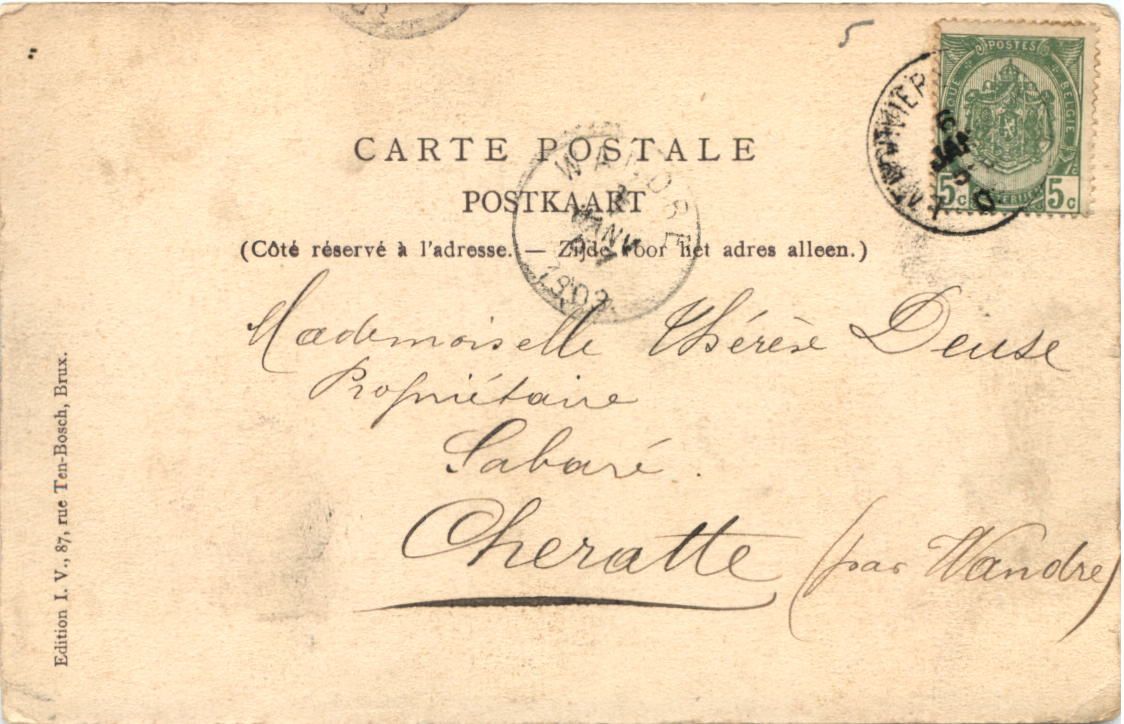 5
POSTES
BELGIE
5c 5c
CARTE POSTALE
POSTKAART
(Côté réservé à l'adresse. — Zijde voor het adres alleen.)
WANDRE
JANV
1903
Mademoiselle Thérèse Deuse
Propriétaire
Sabaré.
Cheratte (par Wandre)
Edition I. V., 87, rue Ten-Bosch, Brux.